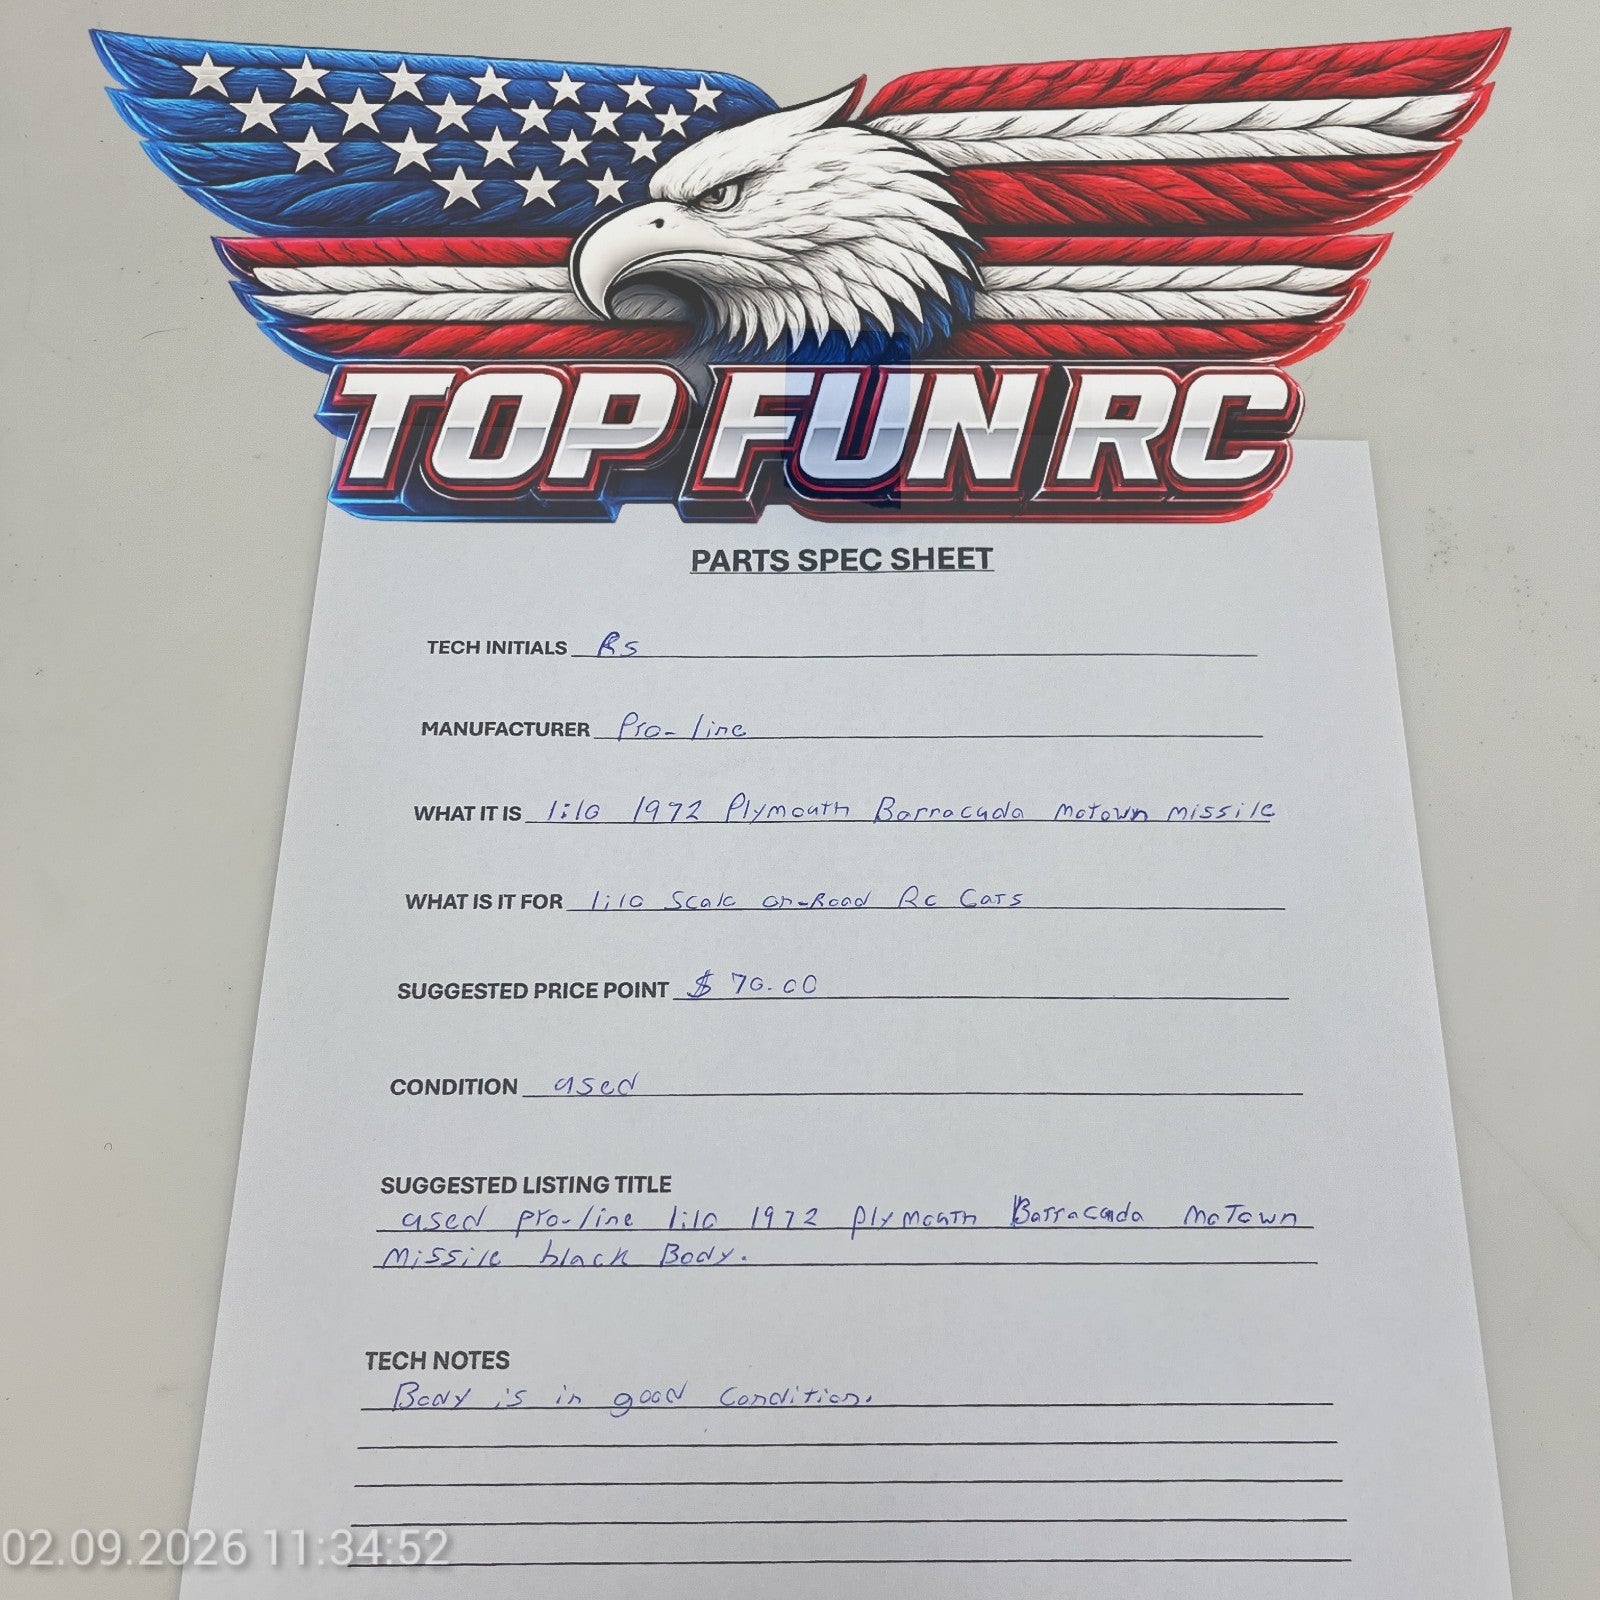 TOP FUN RC
PARTS SPEC SHEET
TECH INITIALS RS
MANUFACTURER Pro-line
WHAT IT IS 1:10 1972 Plymouth Barracuda Motown missile
WHAT IS IT FOR 1:10 Scale on-Road Rc Cars
SUGGESTED PRICE POINT $ 70.00
CONDITION used
SUGGESTED LISTING TITLE
used pro-line 1:10 1972 plymouth Barracuda MoTown
Missile black Body.
TECH NOTES
Body is in good Condition.
02.09.2026 11:34:52